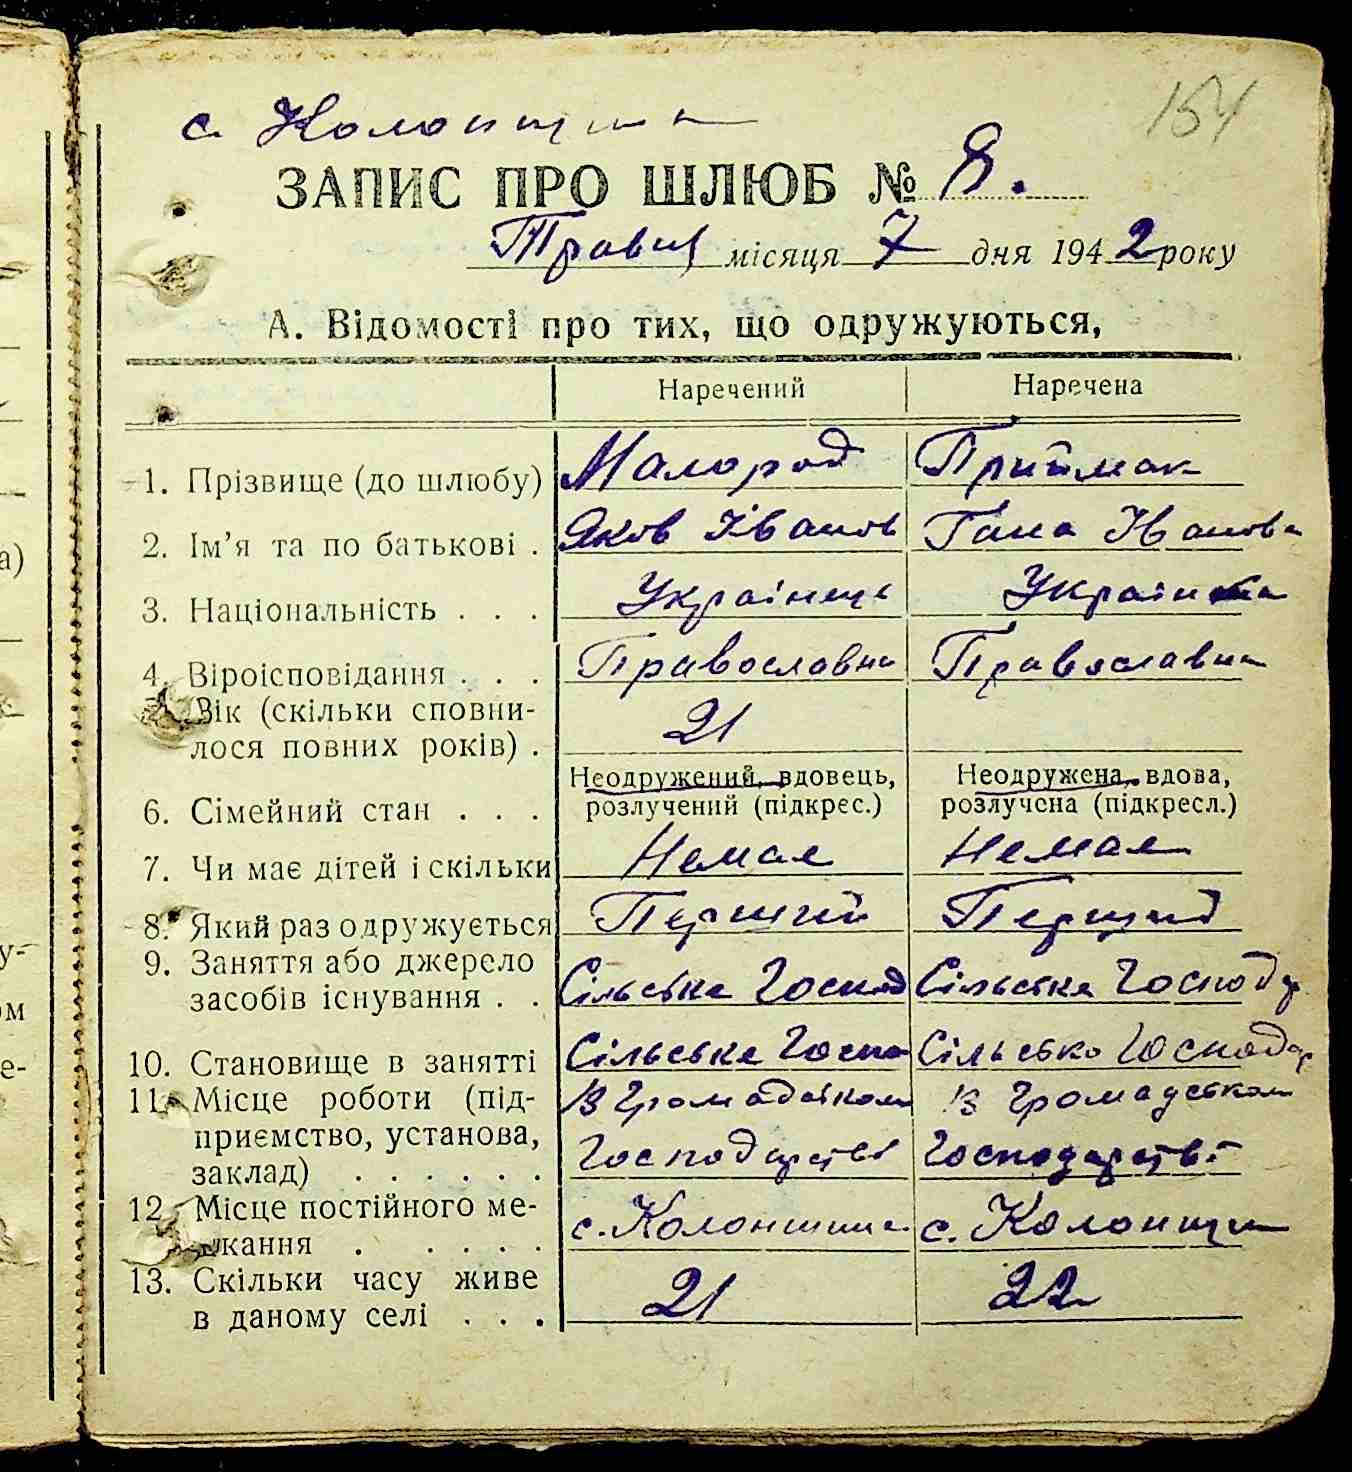 154
с. Колонщина
ЗАПИС ПРО ШЛЮБ № 8.
Травня місяця 7 дня 1942 року
А. Відомості про тих, що одружуються,
Наречений Наречена
1. Прізвище (до шлюбу) Малород Приймак
2. Ім'я та по батькові . Яков Іванов Гана Івановн
3. Національність . . . Українець Українка
4. Віроісповідання . . . Православна Православна
5. Вік (скільки сповни-
лося повних років) . 21
Неодружений, вдовець, Неодружена, вдова,
6. Сімейний стан . . . розлучений (підкрес.) розлучена (підкресл.)
7. Чи має дітей і скільки Немає Немає
8. Який раз одружується Перший Перший
9. Заняття або джерело
засобів існування . . Сільське Господ Сільске Господар
10. Становище в занятті Сільське Госпо Сільсько Господар
11. Місце роботи (під- В Громадськом В Громадськом
приємство, установа,
заклад) . . . . . . Господарстві Господарстві
12. Місце постійного ме-
шкання . . . . . с. Колонщина с. Колонщин
13. Скільки часу живе
в даному селі . . . 21 22
а)
у-
ом
е-